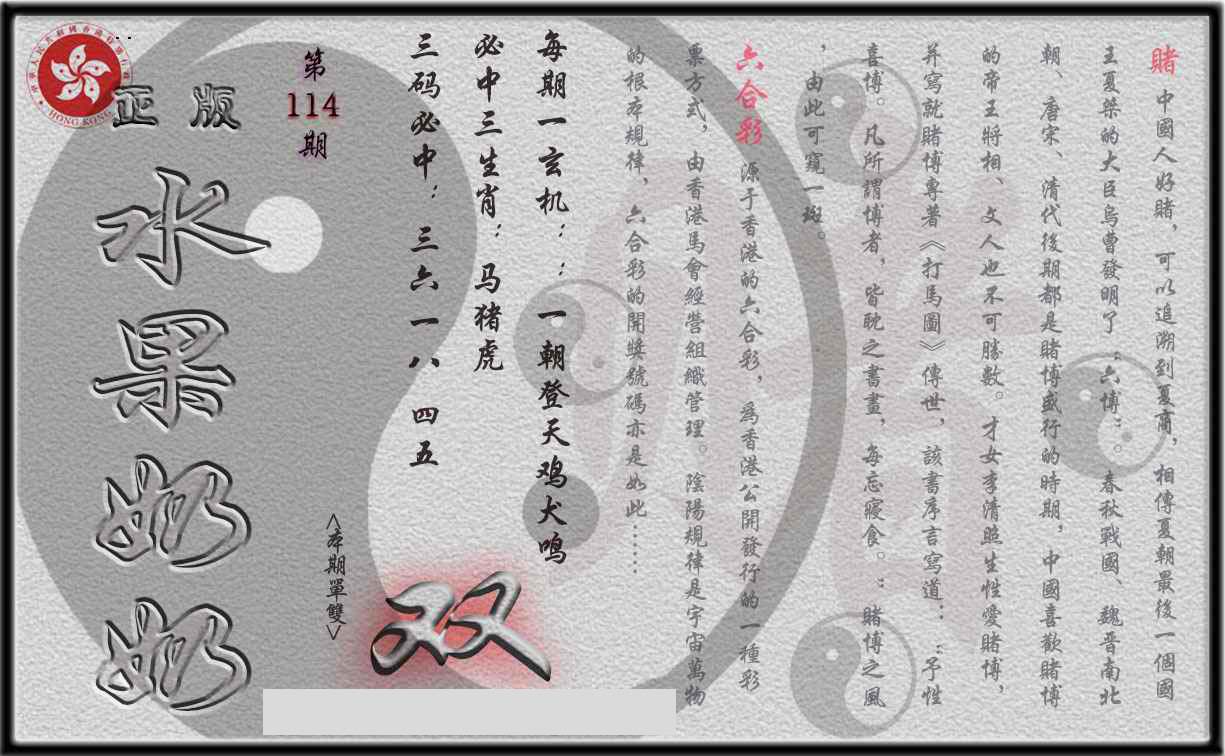 賭 中國人好賭，可以追溯到夏商，相傳夏朝最後一個國
王夏桀的大臣烏曹發明了：六博：。春秋戰國、魏晉南北
朝、唐宋、清代後期都是賭博盛行的時期，中國喜歡賭博
的帝王將相、文人也不可勝數。才女李清照生性愛賭博，
并寫就賭博專著《打馬圖》傳世，該書序言寫道：：予性
喜博。凡所謂博者，皆耽之書晝，每忘寢食。：賭博之風
，由此可窺一斑。
六合彩 源于香港的六合彩，為香港公開發行的一種彩
票方式，由香港馬會經營組織管理。陰陽規律是宇宙萬物
的根本規律、六合彩的開獎號碼亦是如此……
每期一玄机：：一朝登天鸡犬鸣
必中三生肖：马猪虎
三码必中：三六 一八 四五
第
114
期
<本期單雙>
双
正版
水果奶奶
HONG KONG